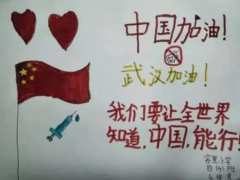 中国加油!
武汉加油!
我们要让全世界
知道,中国,能行!